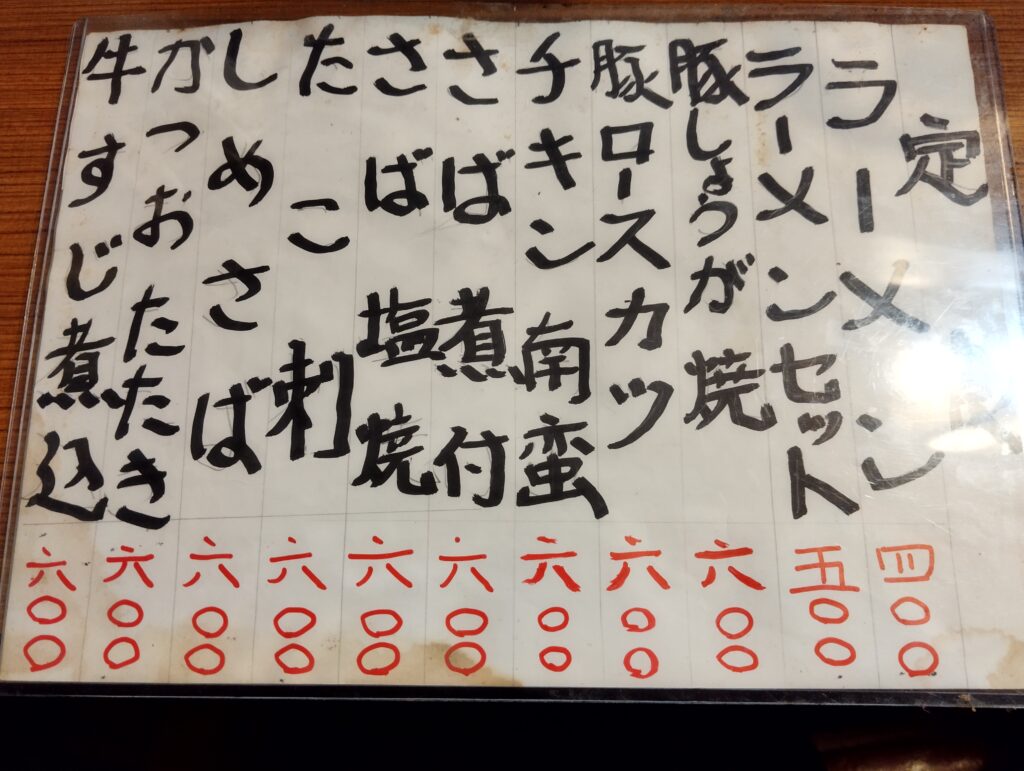 定
ラーメン 四〇〇
ラーメンセット 五〇〇
豚しょうが焼 六〇〇
豚ロースカツ 六〇〇
チキン南蛮 六〇〇
さば煮付 六〇〇
さば塩焼 六〇〇
たこ刺 六〇〇
しめさば 六〇〇
かつおたたき 六〇〇
牛すじ煮込 六〇〇